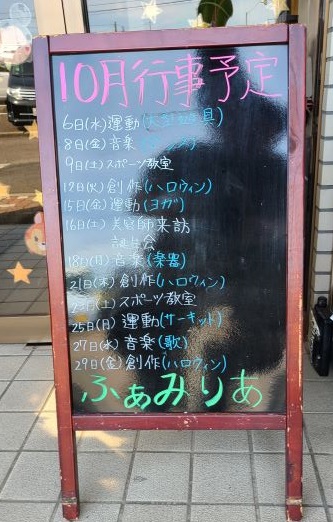 10月行事予定
6日(水)運動(大型遊具)
8日(金)音楽
9日(土)スポーツ教室
12日(火)創作(ハロウィン)
15日(金)運動(ヨガ)
16日(土)美容師来訪
誕生会
18日(月)音楽(楽器)
21日(木)創作(ハロウィン)
23日(土)スポーツ教室
25日(月)運動(サーキット)
27日(水)音楽(歌)
29日(金)創作(ハロウィン)
ふぁみりあ